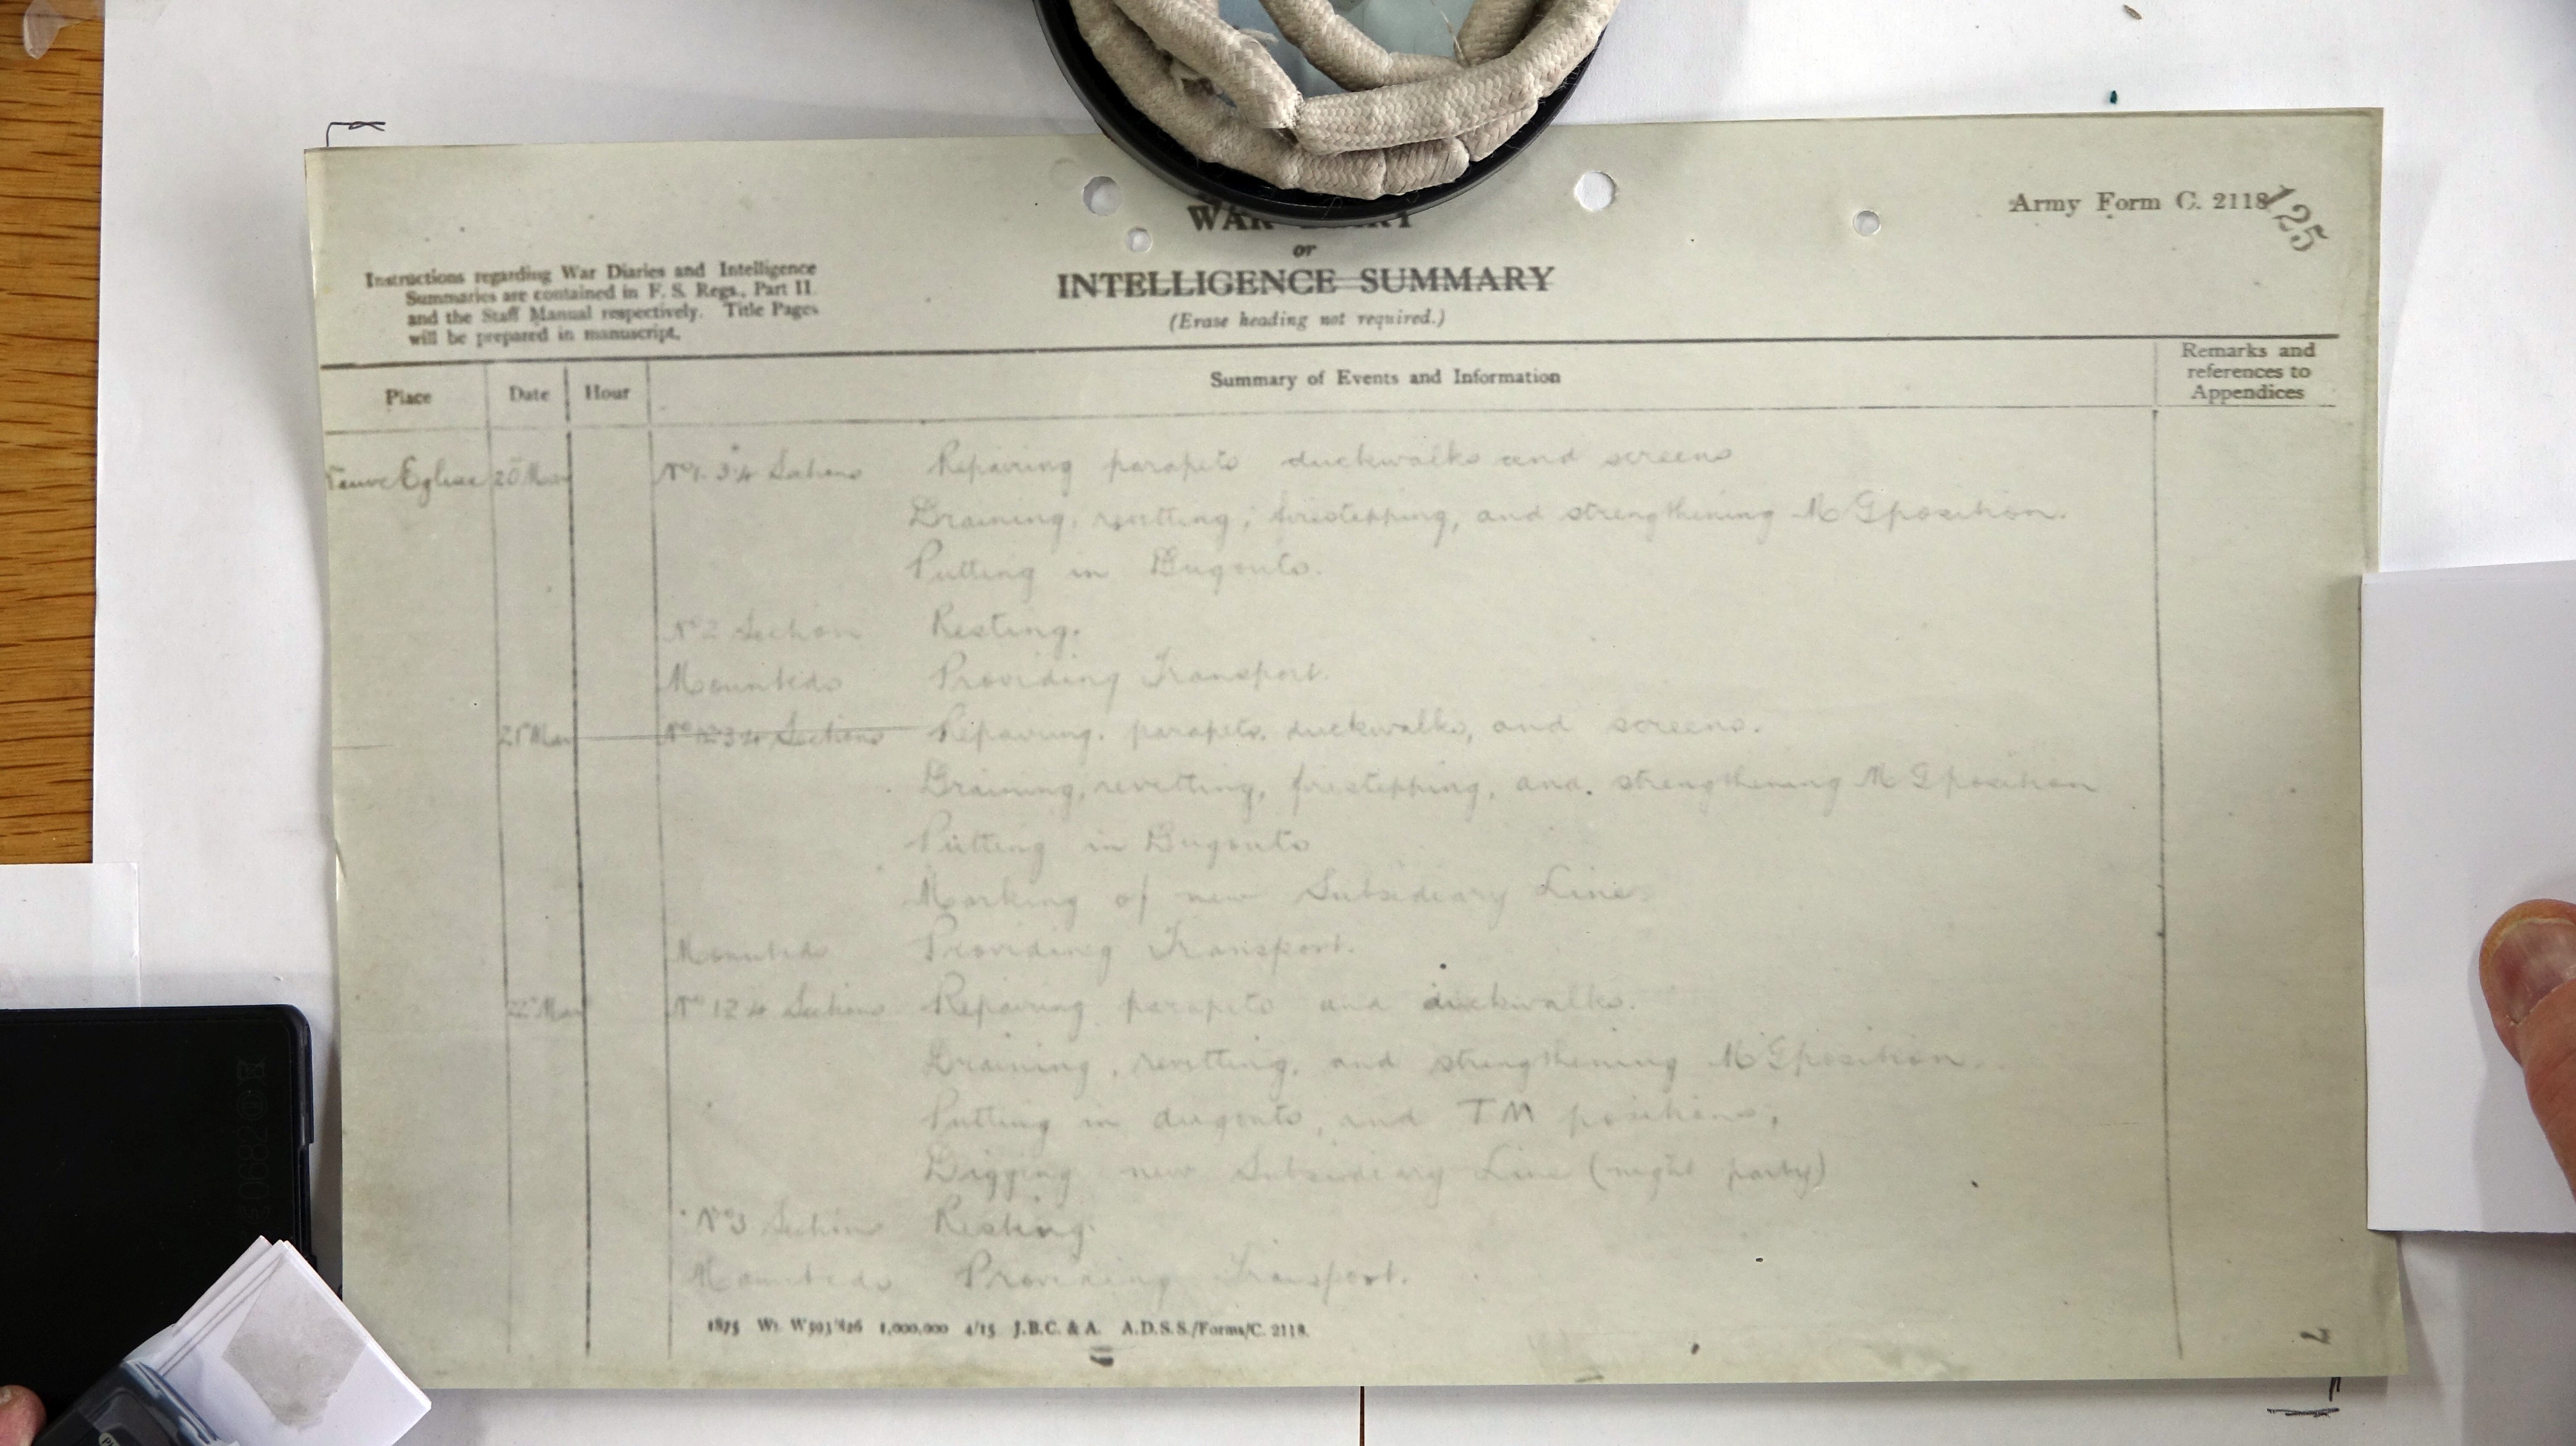 Army Form C. 2118
125
WAR DIARY
or
INTELLIGENCE SUMMARY
(Erase heading not required.)
Instructions regarding War Diaries and Intelligence
Summaries are contained in F. S. Regs., Part II.
and the Staff Manual respectively. Title Pages
will be prepared in manuscript.
Place Date Hour Summary of Events and Information Remarks and
references to
Appendices
Neuve Eglise 20 Mar No 1. 3 4 Sections Repairing parapets duckwalks and screens
Draining, revetting, firestepping, and strengthening M G position.
Putting in Dugouts.
No 2 Section Resting.
Mounteds Providing Transport.
21 Mar No 1 2 3 4 Sections Repairing. parapets. duckwalks, and screens.
Draining, revetting, firestepping, and. strengthening M G position
Putting in Dugouts
Marking of new Subsidiary Line
Mounteds Providing Transport.
22 Mar No 1 2 4 Sections Repairing parapets and duckwalks.
Draining, revetting, and strengthening M G position.
Putting in dugouts, and T M positions,
Digging new Subsidiary Line (night party)
No 3 Section Resting.
Mounteds Providing Transport.
1875 Wt. W593/826 1,000,000 4/15 J.B.C. & A. A.D.S.S./Forms/C. 2118.
7